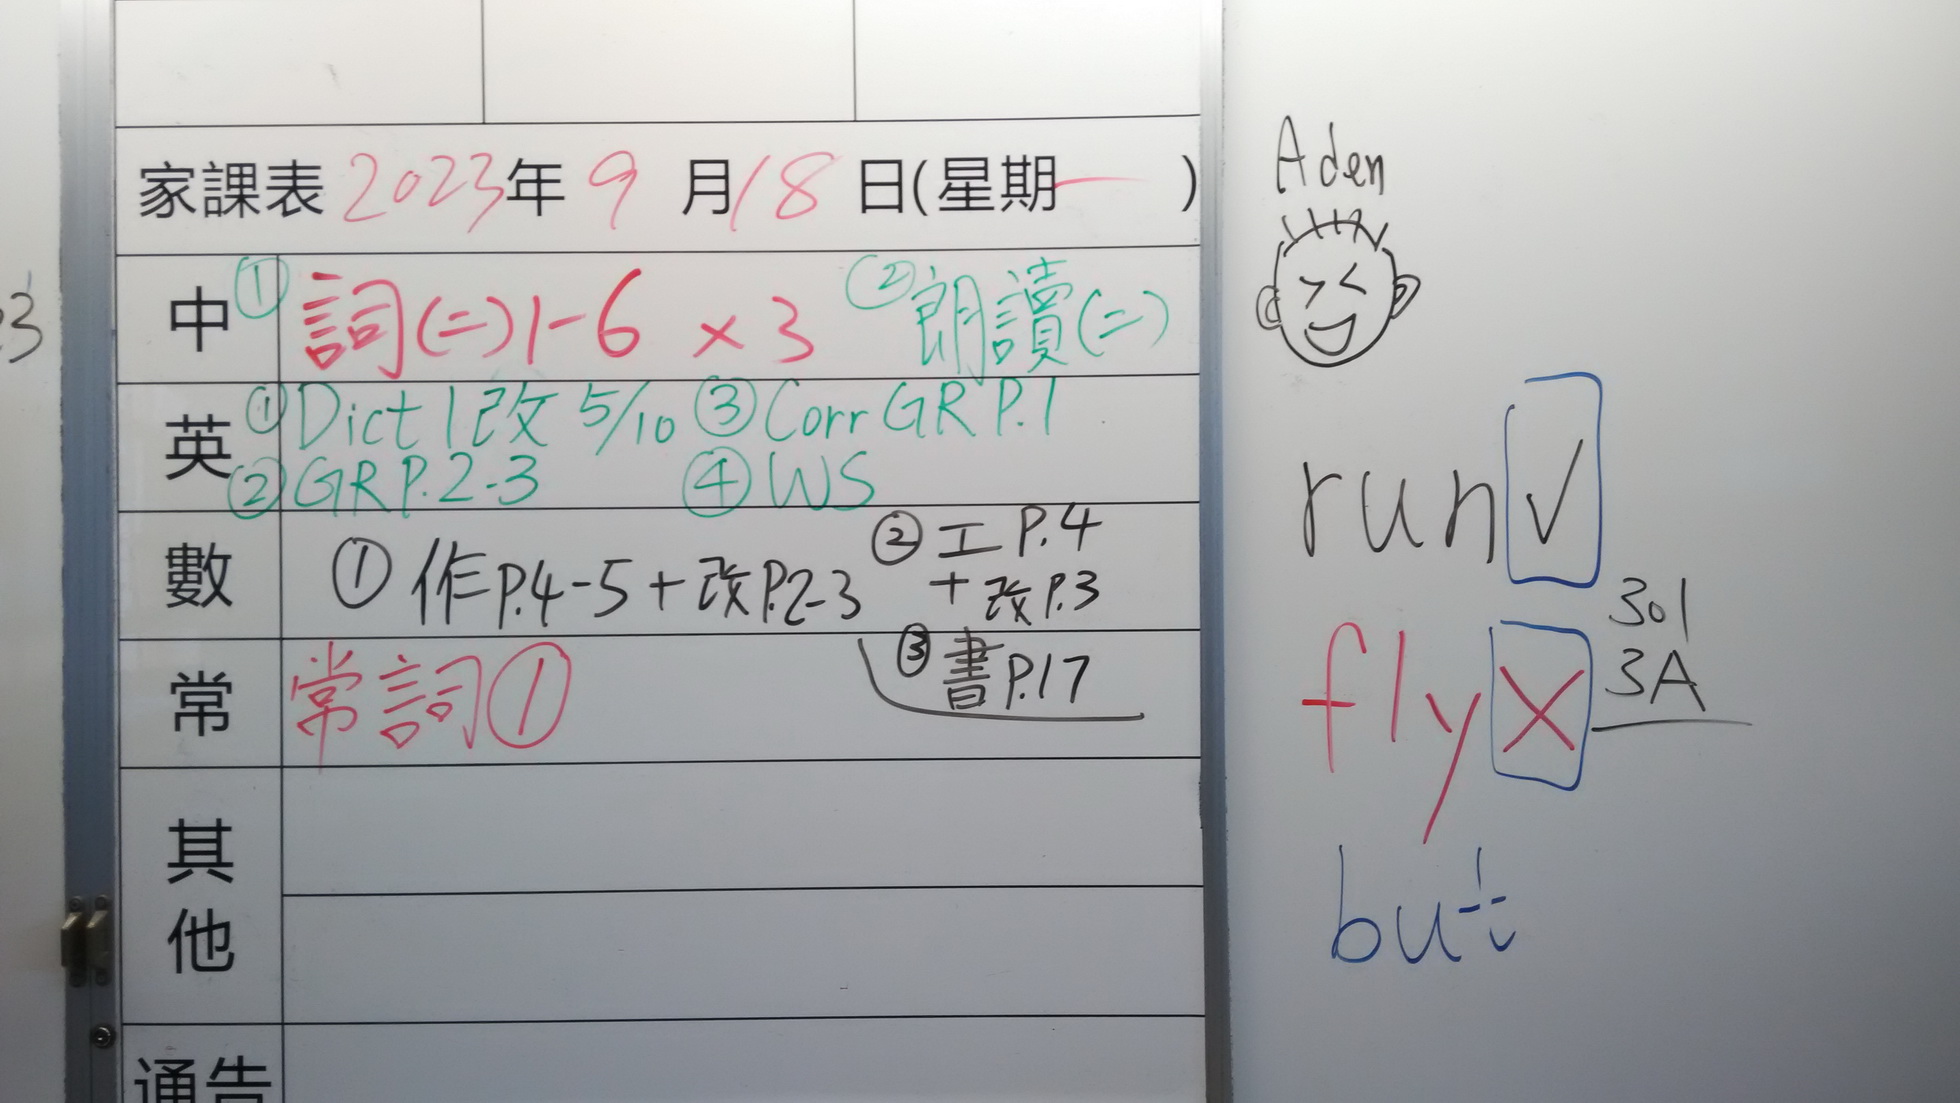 家課表 2023年 9 月 18 日(星期一 )
中 ① 詞(二)1-6 × 3 ② 朗讀(二)
英 ① Dict 1 改 5/10 ③ Corr GR P.1
② GR P.2-3 ④ WS
數 ① 作P.4-5 + 改P.2-3 ② 工 P.4
+ 改P.3
③ 書P.17
常 常詞①
其他
通告
Aden
run ✓
301
3A
fly ×
but